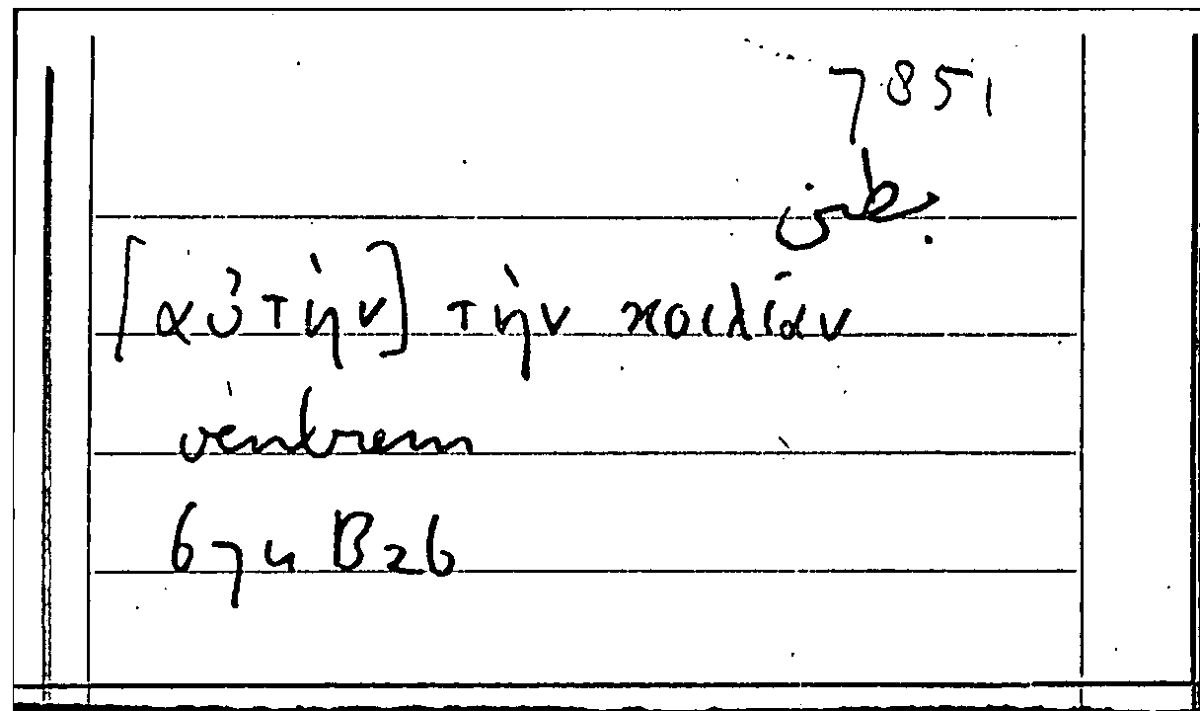 7851
بطن
[αὐτὴν] τὴν κοιλίαν
ventrem
674 B26